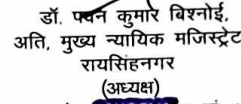 डॉ. पवन कुमार बिश्नोई,
अति, मुख्य न्यायिक मजिस्ट्रेट
रायसिंहनगर
(अध्यक्ष)